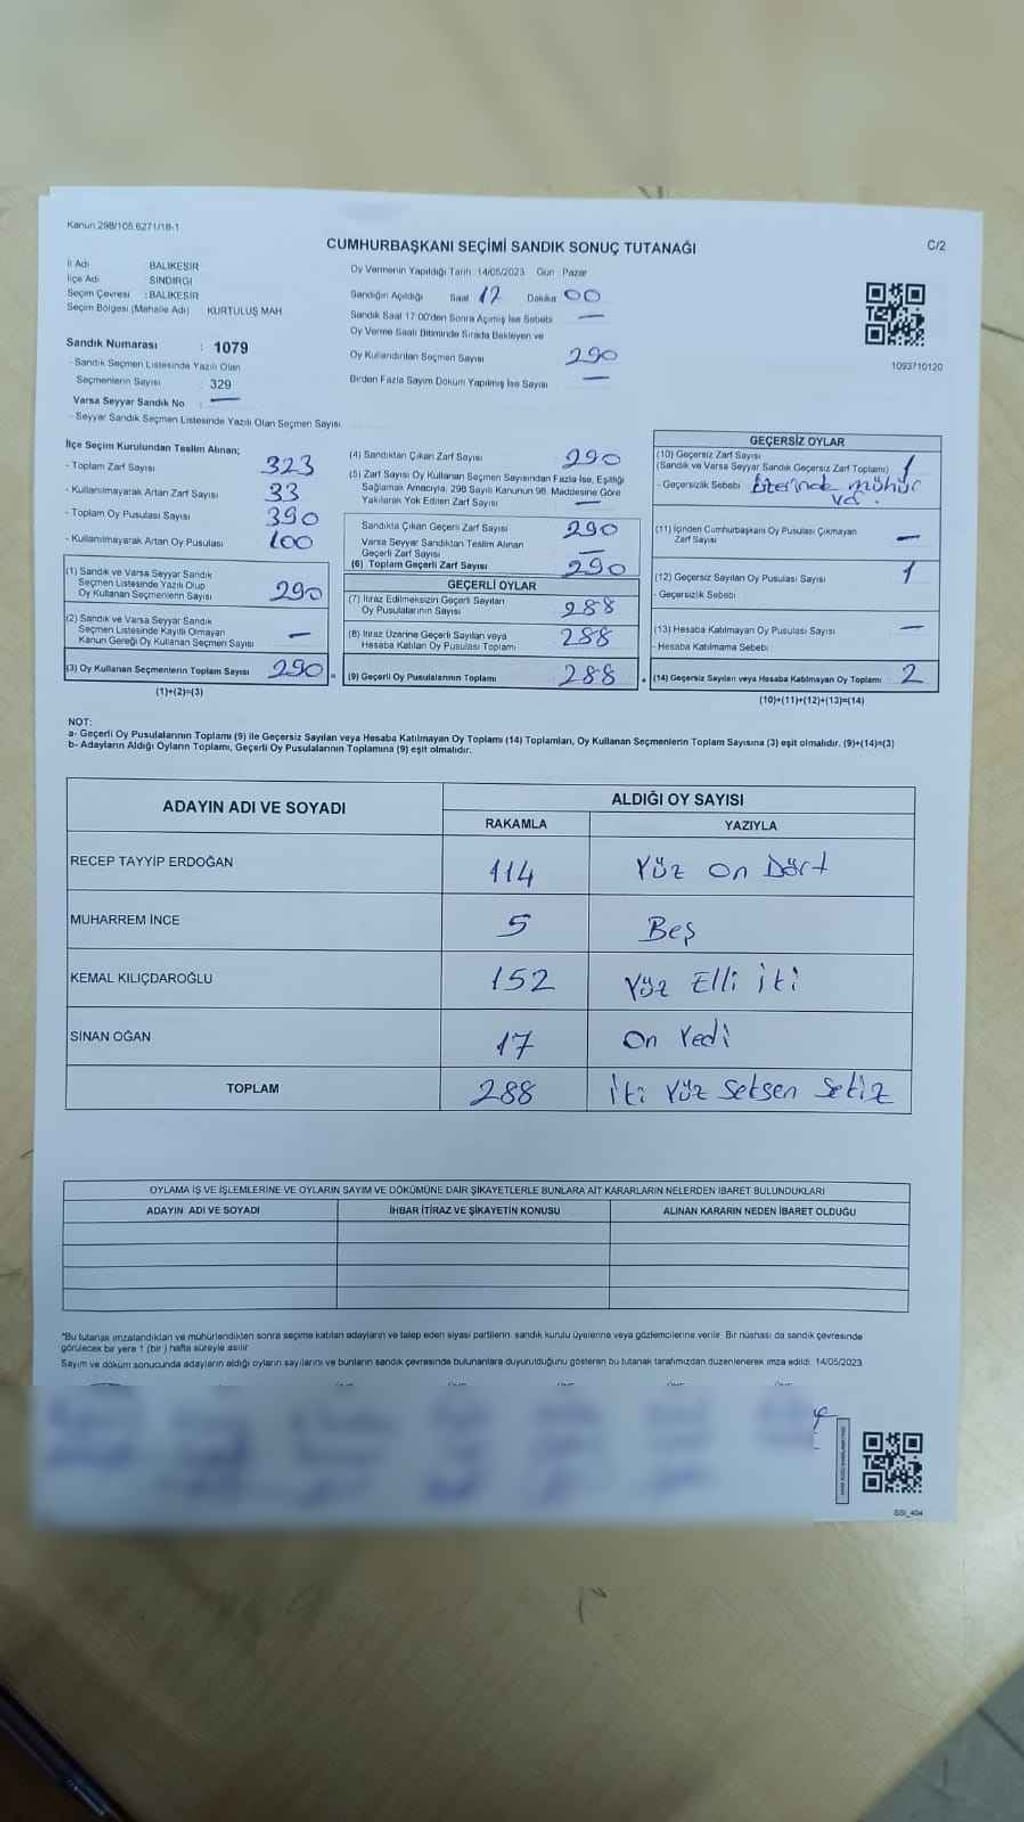 Kanun 298/105 6271/18-1
CUMHURBAŞKANI SEÇİMİ SANDIK SONUÇ TUTANAĞI
C/2
İl Adı BALIKESİR
İlçe Adı SINDIRGI
Seçim Çevresi : BALIKESİR
Seçim Bölgesi (Mahalle Adı) KURTULUŞ MAH
Sandık Numarası : 1079
- Sandık Seçmen Listesinde Yazılı Olan
Seçmenlerin Sayısı 329
Varsa Seyyar Sandık No —
- Seyyar Sandık Seçmen Listesinde Yazılı Olan Seçmen Sayısı
Oy Vermenin Yapıldığı Tarih 14/05/2023 Gün Pazar
Sandığın Açıldığı Saat 17 Dakika 00
Sandık Saat 17:00'den Sonra Açılmış İse Sebebi —
Oy Verme Saati Bitiminde Sırada Bekleyen ve
Oy Kullandırılan Seçmen Sayısı 290
Birden Fazla Sayım Döküm Yapılmış İse Sayısı —
1093710120
İlçe Seçim Kurulundan Teslim Alınan;
- Toplam Zarf Sayısı 323
- Kullanılmayarak Artan Zarf Sayısı 33
- Toplam Oy Pusulası Sayısı 390
- Kullanılmayarak Artan Oy Pusulası 100
(1) Sandık ve Varsa Seyyar Sandık
Seçmen Listesinde Yazılı Olup
Oy Kullanan Seçmenlerin Sayısı 290
(2) Sandık ve Varsa Seyyar Sandık
Seçmen Listesinde Kayıtlı Olmayan
Kanun Gereği Oy Kullanan Seçmen Sayısı —
(3) Oy Kullanan Seçmenlerin Toplam Sayısı 290
(1)+(2)=(3)
(4) Sandıktan Çıkan Zarf Sayısı 290
(5) Zarf Sayısı Oy Kullanan Seçmen Sayısından Fazla İse, Eşitliği
Sağlamak Amacıyla, 298 Sayılı Kanunun 98. Maddesine Göre
Yakılarak Yok Edilen Zarf Sayısı —
Sandıkta Çıkan Geçerli Zarf Sayısı 290
Varsa Seyyar Sandıktan Teslim Alınan
Geçerli Zarf Sayısı —
(6) Toplam Geçerli Zarf Sayısı 290
GEÇERLİ OYLAR
(7) İtiraz Edilmeksizin Geçerli Sayılan
Oy Pusulalarının Sayısı 288
(8) İtiraz Üzerine Geçerli Sayılan veya
Hesaba Katılan Oy Pusulası Toplamı 288
(9) Geçerli Oy Pusulalarının Toplamı 288
GEÇERSİZ OYLAR
(10) Geçersiz Zarf Sayısı
(Sandık ve Varsa Seyyar Sandık Geçersiz Zarf Toplamı) 1
- Geçersizlik Sebebi mühür
(11) İçinden Cumhurbaşkanı Oy Pusulası Çıkmayan
Zarf Sayısı —
(12) Geçersiz Sayılan Oy Pusulası Sayısı 1
- Geçersizlik Sebebi
(13) Hesaba Katılmayan Oy Pusulası Sayısı —
- Hesaba Katılmama Sebebi
(14) Geçersiz Sayılan veya Hesaba Katılmayan Oy Toplamı 2
(10)+(11)+(12)+(13)=(14)
NOT:
a- Geçerli Oy Pusulalarının Toplamı (9) ile Geçersiz Sayılan veya Hesaba Katılmayan Oy Toplamı (14) Toplamları, Oy Kullanan Seçmenlerin Toplam Sayısına (3) eşit olmalıdır. (9)+(14)=(3)
b- Adayların Aldığı Oyların Toplamı, Geçerli Oy Pusulalarının Toplamına (9) eşit olmalıdır.
ADAYIN ADI VE SOYADI ALDIĞI OY SAYISI
RAKAMLA YAZIYLA
RECEP TAYYİP ERDOĞAN 114 Yüz On Dört
MUHARREM İNCE 5 Beş
KEMAL KILIÇDAROĞLU 152 Yüz Elli iki
SİNAN OĞAN 17 On Yedi
TOPLAM 288 İki Yüz Seksen Sekiz
OYLAMA İŞ VE İŞLEMLERİNE VE OYLARIN SAYIM VE DÖKÜMÜNE DAİR ŞİKAYETLERLE BUNLARA AİT KARARLARIN NELERDEN İBARET BULUNDUKLARI
ADAYIN ADI VE SOYADI İHBAR İTİRAZ VE ŞİKAYETİN KONUSU ALINAN KARARIN NEDEN İBARET OLDUĞU
*Bu tutanak imzalandıktan ve mühürlendikten sonra seçime katılan adayların ve talep eden siyasi partilerin sandık kurulu üyelerine veya gözlemcilerine verilir. Bir nüshası da sandık çevresinde
görülecek bir yere 1 (bir) hafta süreyle asılır
Sayım ve döküm sonucunda adayların aldığı oyların sayılarını ve bunların sandık çevresinde bulunanlara duyurulduğunu gösteren bu tutanak tarafımızdan düzenlenerek imza edildi. 14/05/2023
SSI_404